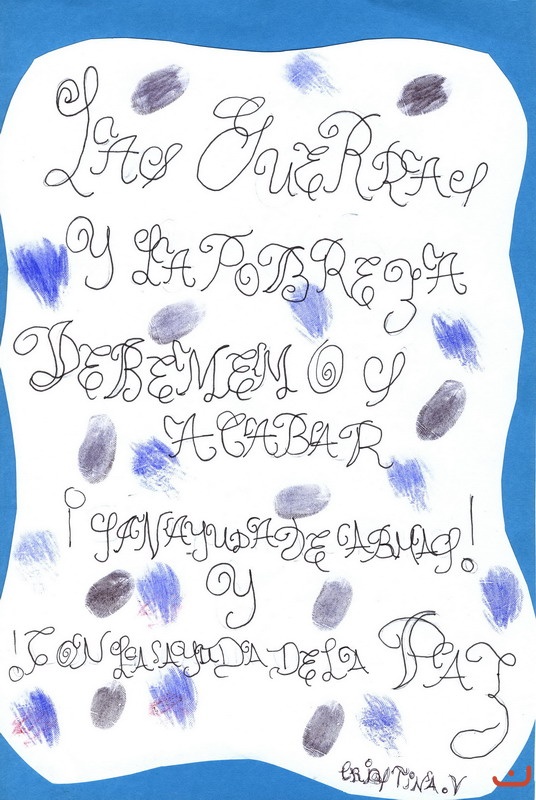 LAS GUERRAS
Y LA POBREZA
DEBEMEMOS
ACABAR
¡ AYUDA DE ARMAS!
Y
¡CON LA AYUDA DE LA PAZ
CRISTINA.V